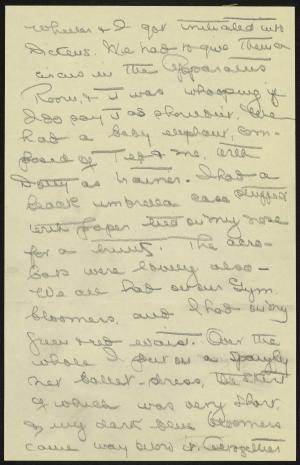 Wheeler & I got initiated into
Dickens. We had to give them a
circus in the Apparatus
Room, & it was whooping if
I do say it as shouldn't. We
had a baby elephant, com-
posed of Teg & me, with
Dotty as trainer. I had a
black umbrella case stuffed
with paper tied on my nose
for a trunk. The acro-
bats were lovely also –
We all had on our gym
bloomers, and I had on my
green & red Over the
whole I put on a spangly
net ballet-dress, the skirt
of which was very short
& my dark blue bloomers
came way below it. Altogether